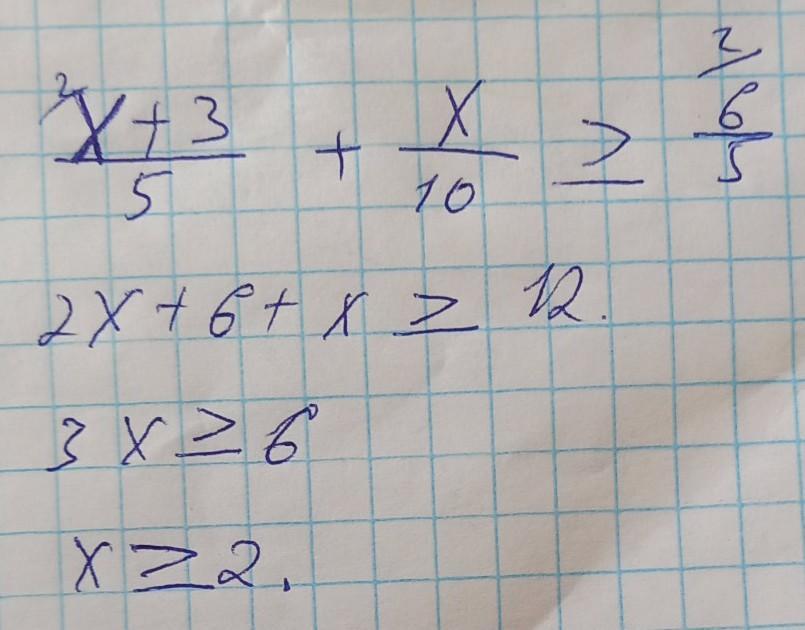 ²/ (x + 3)/5 + x/10 ≥ ²/ 6/5
2x + 6 + x ≥ 12.
3x ≥ 6
x ≥ 2.